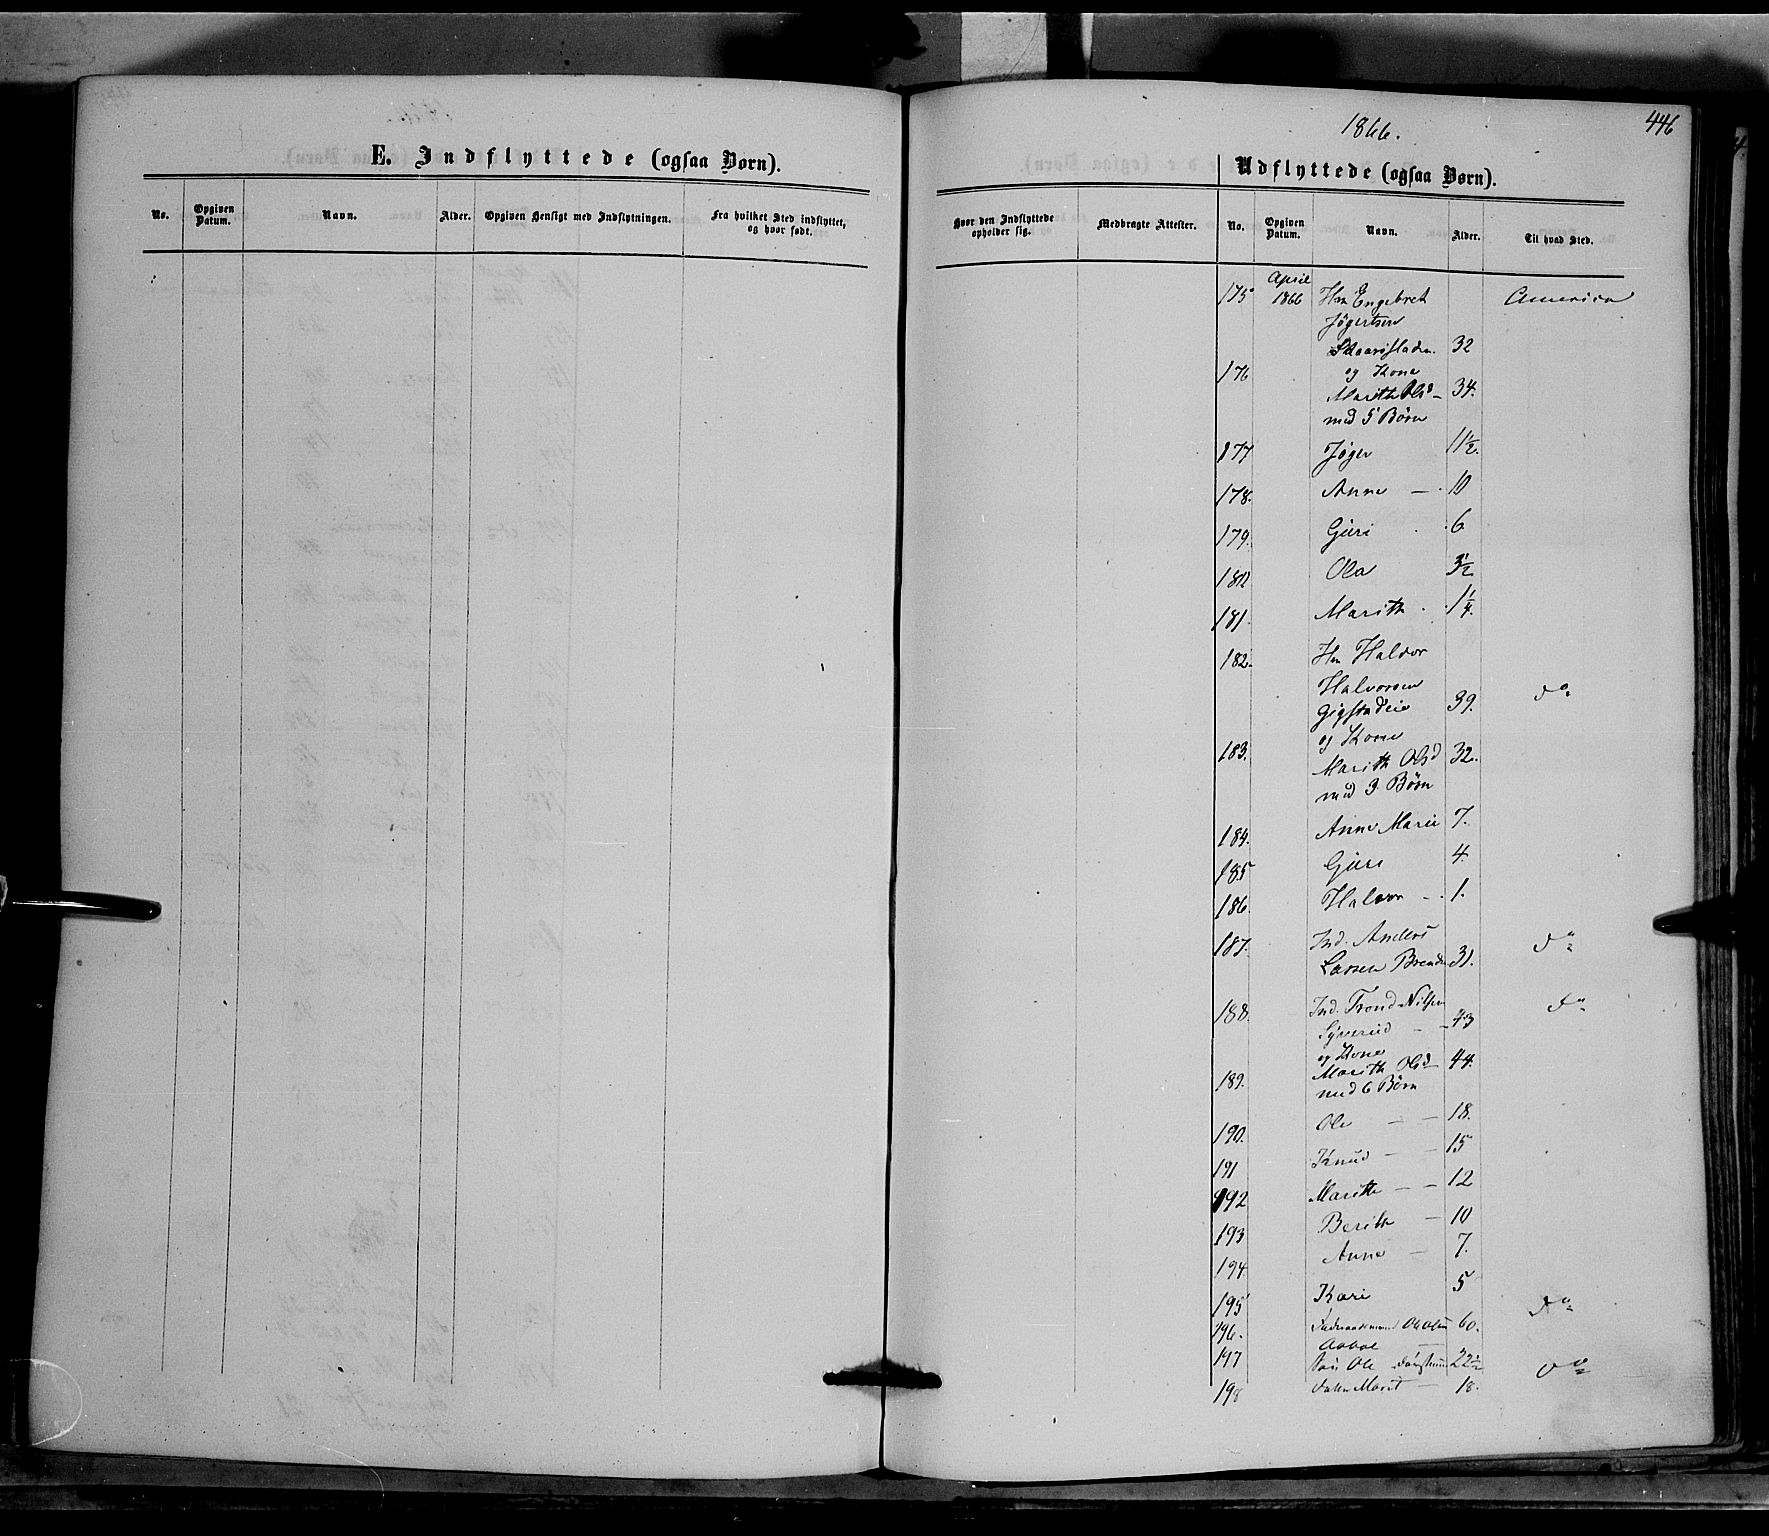 446
1866.
E. Indflyttede (ogsaa Børn).
Udflyttede (ogsaa Børn).
No. Opgiven Datum. Navn. Alder. Opgiven Hensigt med Indflytningen. Fra hvilket Sted indflyttet, og hvor født.
Hvor den Indflyttede opholder sig. Medbragte Attester. No. Opgiven Datum. Navn. Alder. Til hvad Sted.
175 April 1866 Hm Engebret America
Jøgertsen
32
176 og Kone
Marith Olsd - 34.
med 5 Børn
177 Jøger 11 1/2.
178. Anne - 10
179. Guri 6
180 Ola 3 1/2
181. Marith 1 1/4.
182. Hm Halvor
Halvorsen
Gigstadeie 39. do
og Kone
183. Marith Olsd 32.
med 3 Børn
184. Anne Marie 7.
185 Guri 4
186. Halvor - 1.
187. Ind. Anders do
Larsen 31.
188. Ind. Trond Nilsen do
Syverud - 43
og Kone
189. Marith Olsd 44.
med 6 Børn
190. Ole - - 18.
191 Knud - - 15
192 Marith - - 12
193 Berith - 10
194. Anne - 7.
195 Kari 5
196. Ole Olsen 60. do
197 Ole 22 1/2
198 Marit - 18. do